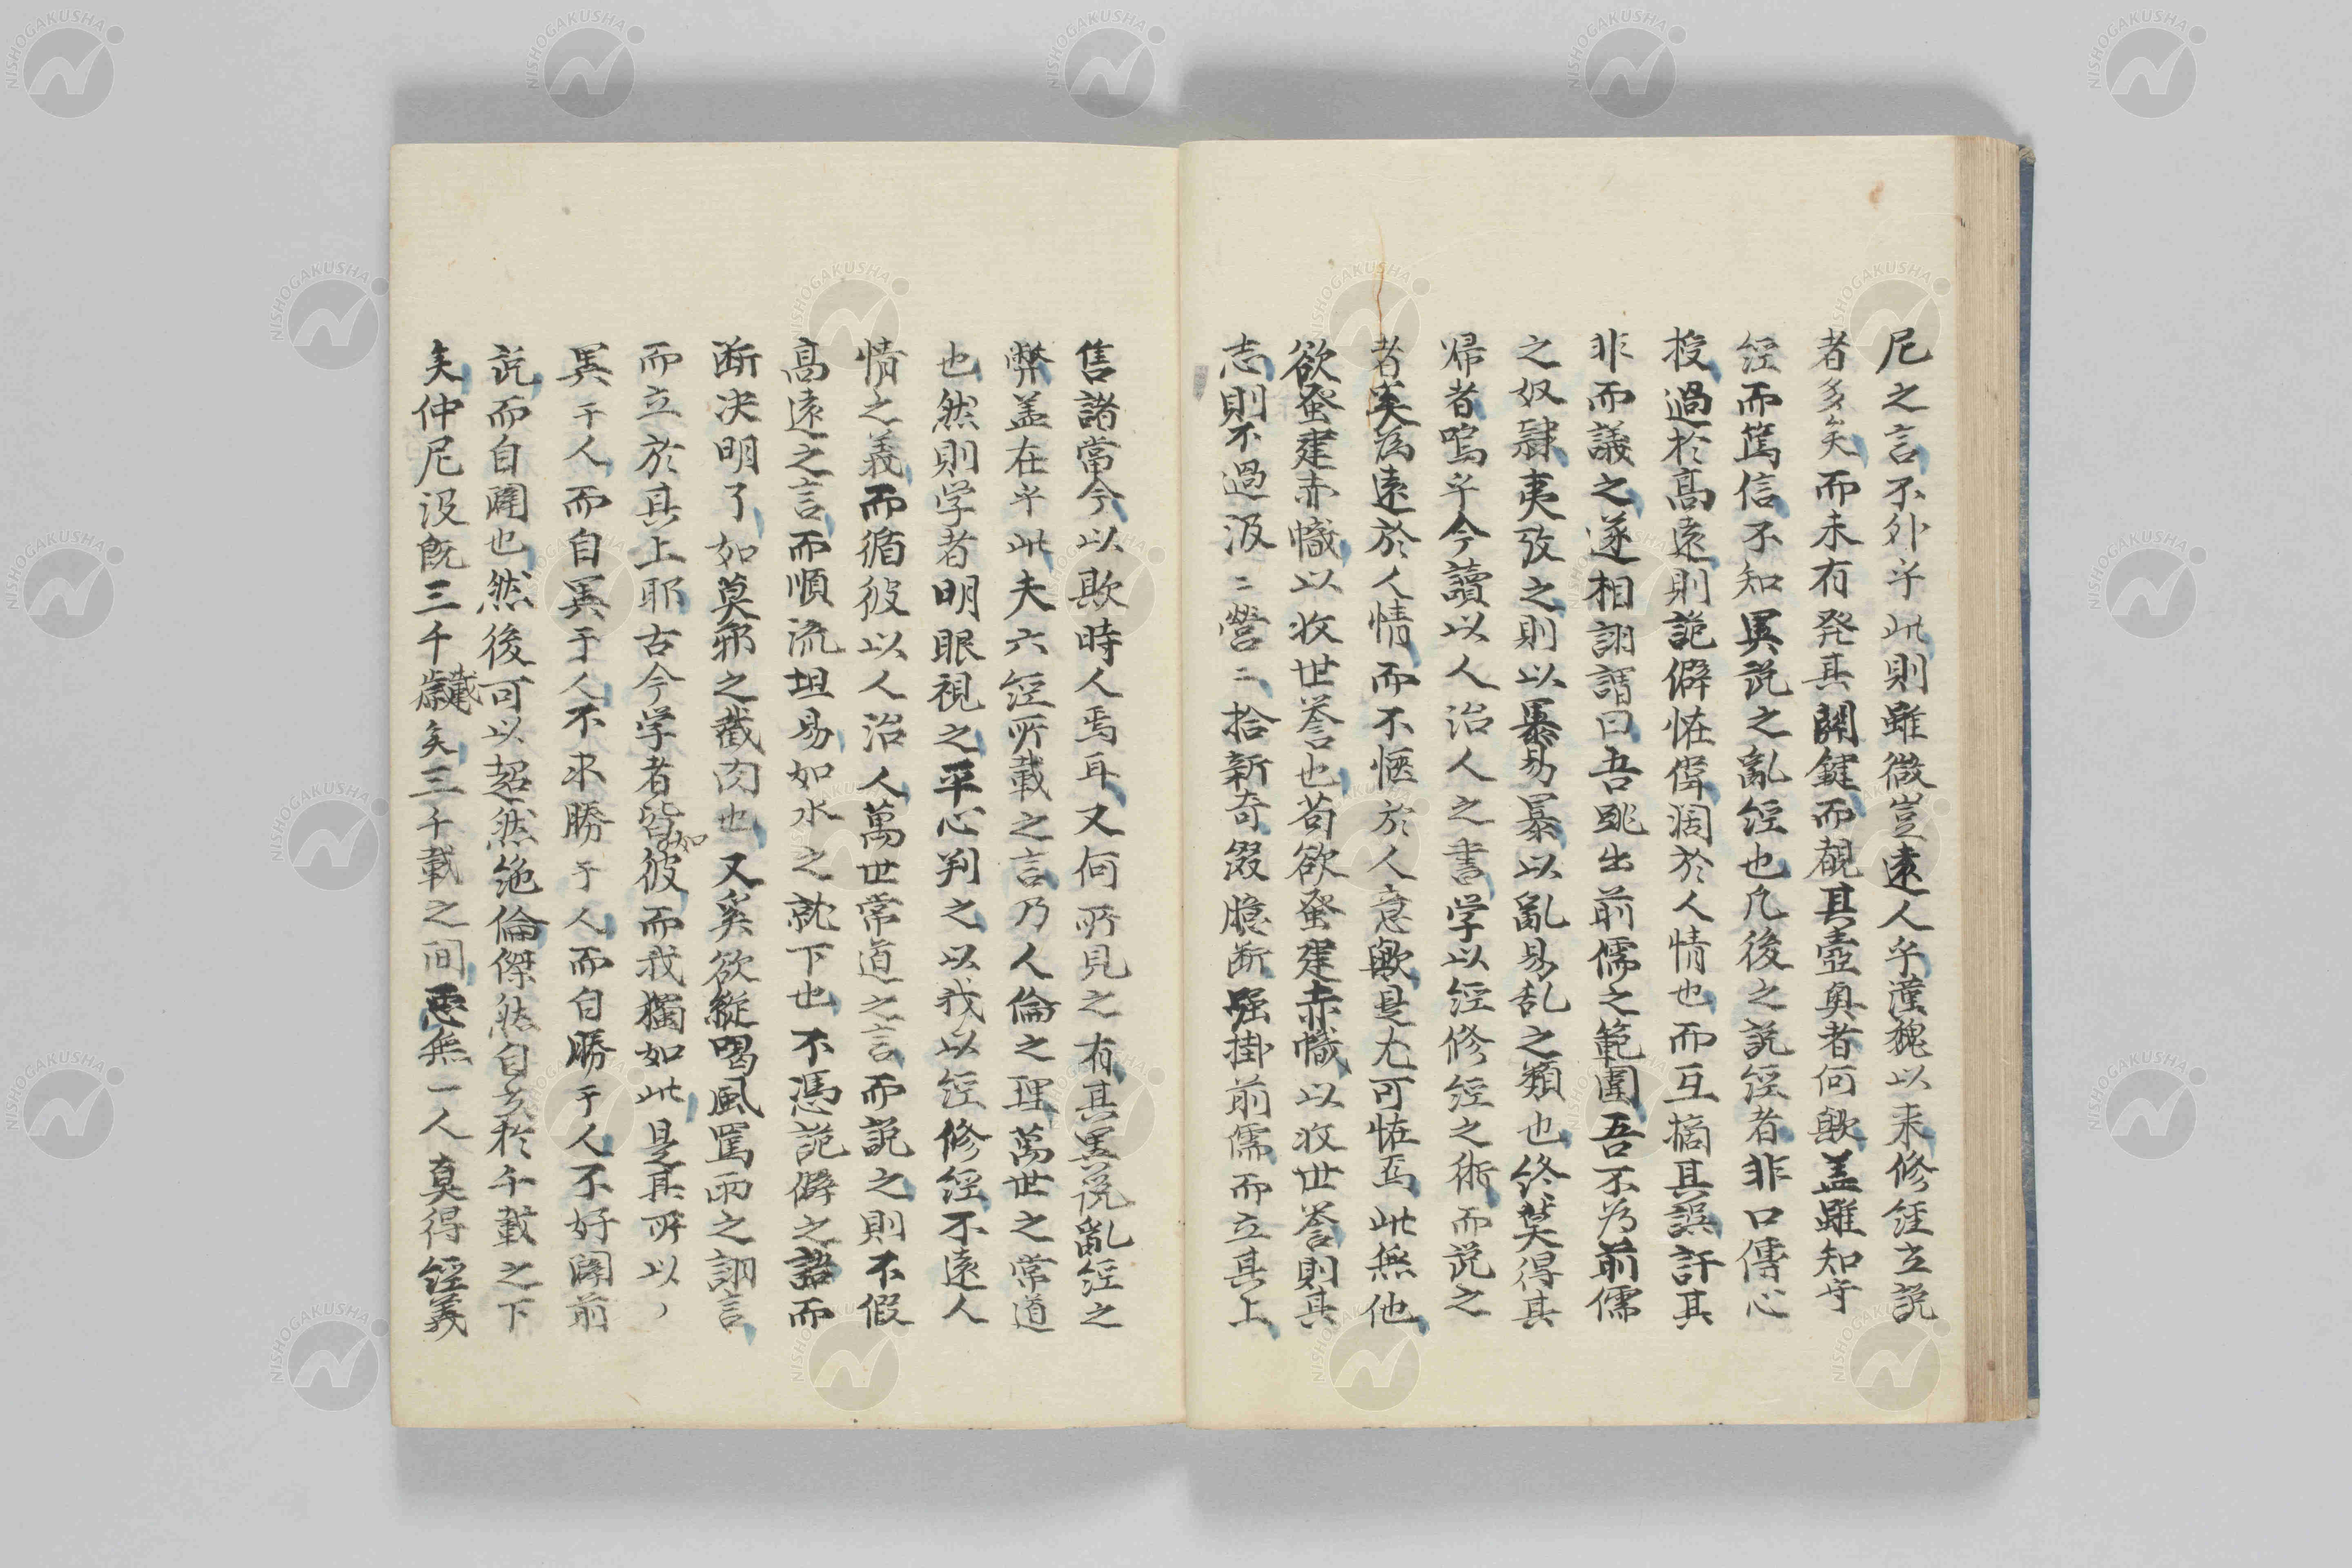 尼之言不外乎此則雖微豈遠人乎漢魏以来修経立説
者多矣而未有発其関鍵而覩其壼奥者何歟盖雖知守
経而篤信不知異説之亂経也凡後之説経者非口傳心
授過於高遠則詭僻恠僻濶於人情也而互摘其誤訐其
非而議之遂相詡謂曰吾跳出前儒之範圍吾不为前儒
之奴隷夷攷之則以暴易暴以亂易乱之類也終莫得其
帰者嗚乎今讀以人治人之書学以経修経之術而説之
者奚為遠於人情而不愜於人意歟是尤可恠焉此無他
欲發建赤幟以收世誉也苟欲發建赤幟以收世誉則其
志則不過汲〻營〻拾新奇綴臆断强掛前儒而立其上
售諸當今以欺時人焉耳又何所見之有其異説亂経之
弊盖在乎此夫六経所載之言乃人倫之理萬世之常道
也然則学者明眼視之平心判之以我以経修経不遠人
情之義而循彼以人治人萬世常道之言而説之則不假
高遠之言而順流坦易如水之就下也不憑詭僻之語而
断决明了如莫邪之截肉也又奚欲縦喝風罵雨之詡言
而立於其上耶古今学者皆如彼而我獨如此是其所以
異于人而自異于人不求勝于人而自勝于人不好闘前
説而自闢也然後可以超然絶倫傑然自立於千載之下
矣仲尼没既三千載矣三千載之间悪無一人真得経義